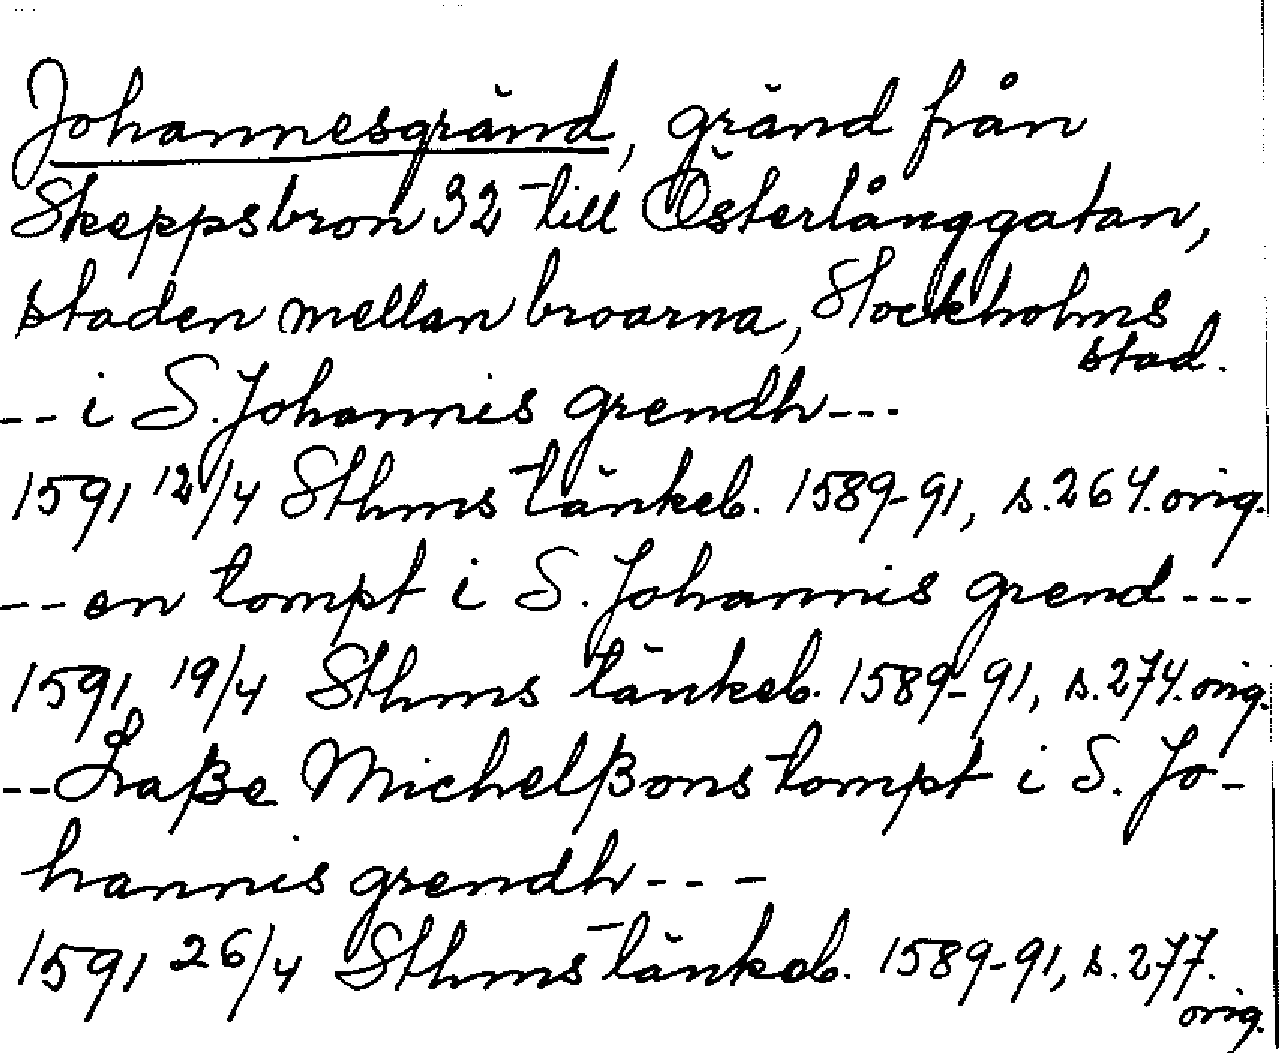 Johannesgränd, gränd från
Skeppsbron 32 till Österlånggatan,
staden mellan broarna, Stockholms
stad.
-- i S. Johannis grendh ---
1591 12/4 Sthms tänkeb. 1589-91, s. 264. orig.
-- en tompt i S. Johannis grend ---
1591 19/4 Sthms tänkeb. 1589-91, s. 274. orig.
-- Laße Michelßons tompt i S. Jo-
hannis grendh ---
1591 26/4 Sthms tänkeb. 1589-91, s. 277.
orig.